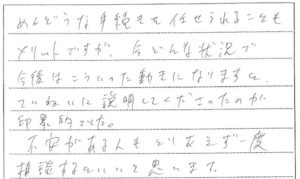 めんどうな手続きを任せられることも
メリットですが、今どんな状況で
今後はこういった動きになりますと、
ていねいに説明してくださったのが
印象的でした。
不安がある人もとりあえず一度
相談するといいと思います。